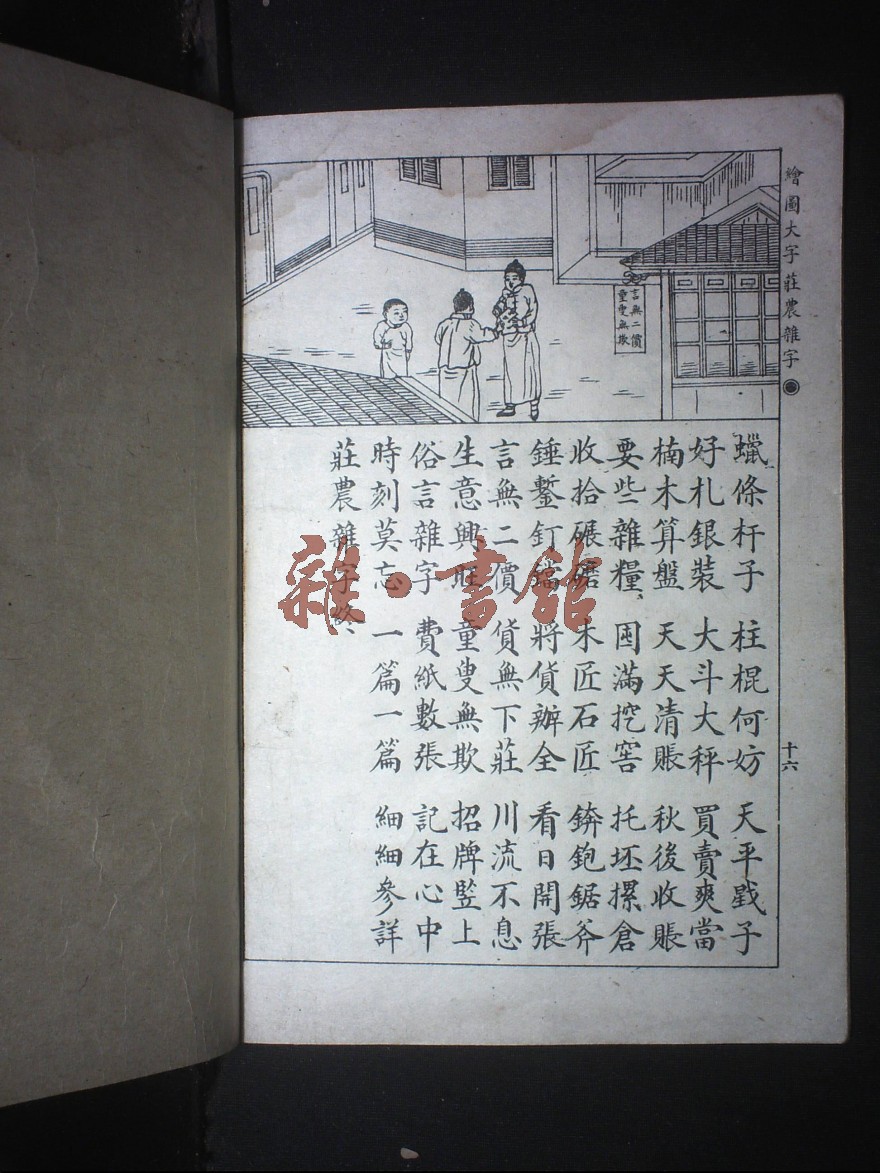 繪圖大字莊農雜字
十六
言無二價
童叟無欺
蠟條杆子 柱棍何妨 天平戥子
好札銀裝 大斗大秤 買賣爽當
楠木算盤 天天清賬 秋後收賬
要些雜糧 囤滿挖窖 托坯摞倉
收拾碾 木匠石匠 錛鉋鋸斧
錘鏨釘 將貨辦全 看日開張
言無二價 貨無下莊 川流不息
生意興旺 童叟無欺 招牌竪上
俗言雜字 費紙數張 記在心中
時刻莫忘 一篇一篇 細細參詳
莊農雜字終
雜·書館